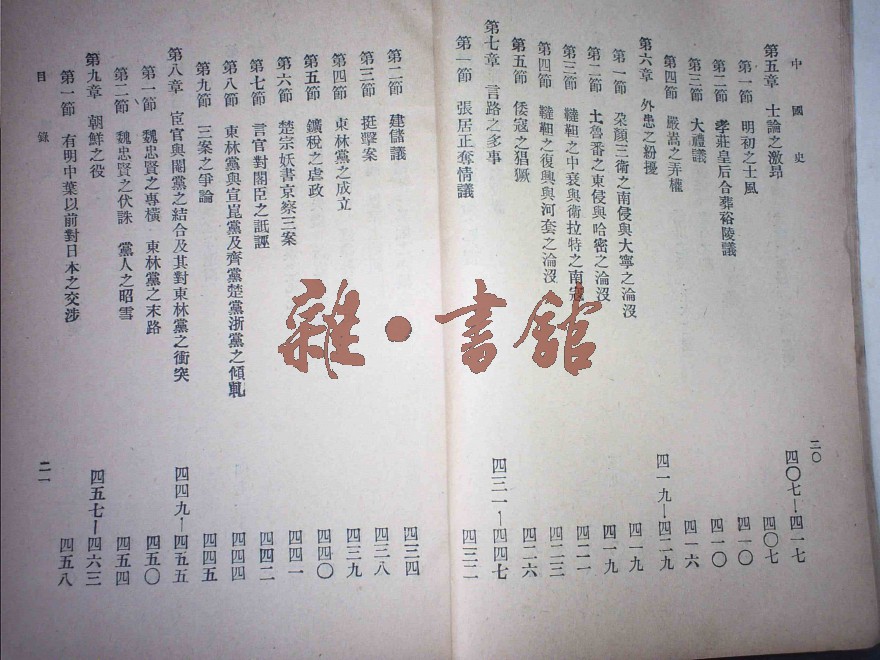 中國史
二〇
第五章 士論之激昂 四〇七—四一七
第一節 明初之士風 四〇七
第二節 孝莊皇后合葬裕陵議 四一〇
第三節 大禮議 四一〇
第四節 嚴嵩之弄權 四一六
第六章 外患之紛擾 四一九—四二九
第一節 朶顏三衛之南侵與大寧之淪沒 四一九
第二節 土魯番之東侵與哈密之淪沒 四一九
第三節 韃靼之中衰與衛拉特之南寇 四二一
第四節 韃靼之復興與河套之淪沒 四二三
第五節 倭寇之猖獗 四二六
第七章 言路之多事 四三一—四四七
第一節 張居正奪情議 四三二
第二節 建儲議 四三四
第三節 挺擊案 四三八
第四節 東林黨之成立 四三九
第五節 鑛稅之虐政 四四〇
第六節 楚宗妖書京察三案 四四一
第七節 言官對閣臣之詆誣 四四二
第八節 東林黨與宣崑黨及齊黨楚黨浙黨之傾軋 四四四
第九節 三案之爭論 四四五
第八章 宦官與閹黨之結合及其對東林黨之衝突 四四九—四五五
第一節 魏忠賢之專橫 東林黨之末路 四五〇
第二節 魏忠賢之伏誅 黨人之昭雪 四五四
第九章 朝鮮之役 四五七—四六三
第一節 有明中葉以前對日本之交涉 四五八
目錄
二一
雜·書館